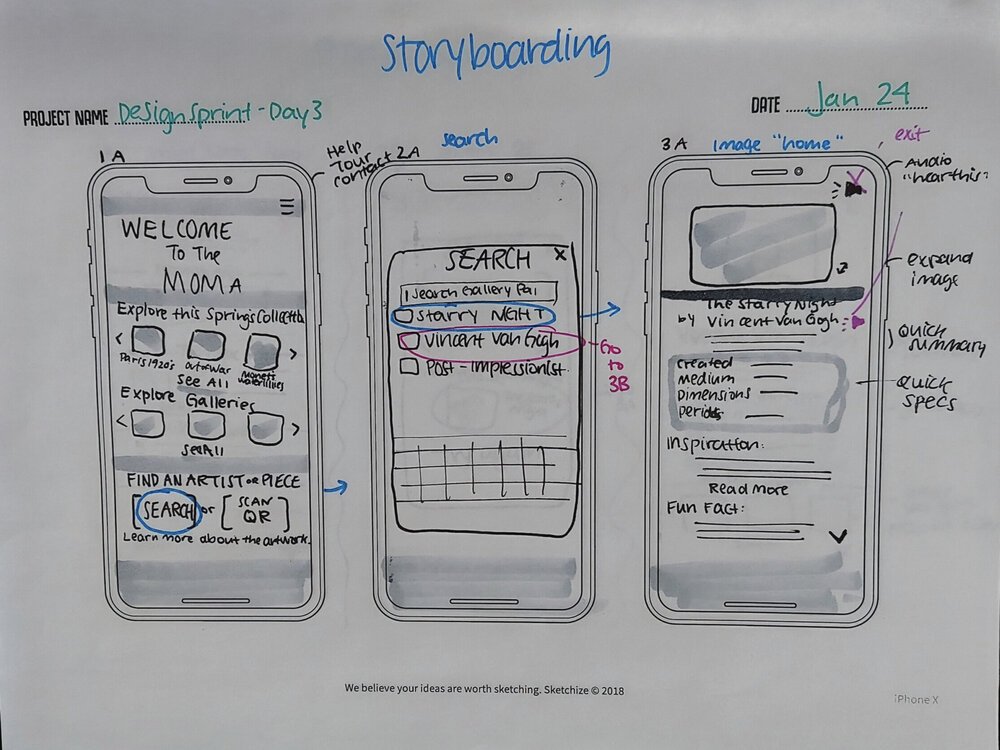 Storyboarding
PROJECT NAME Design Sprint - Day 3
DATE Jan 24
1 A
Help
Tour
contact
WELCOME
To The
MOMA
Explore this Springs
Paris 1920's
Art of War
Monet's
waterlilies
See All
Explore Galleries
See All
FIND AN ARTIST or PIECE
SEARCH or SCAN
QR
Learn more about the artwork.
2A search
SEARCH X
Search Gallery
Starry NIGHT
Vincent Van Gogh
Post - Impressionist
Go
to
3B
3 A image "home"
exit
Audio
"hear this"
expand
image
The Starry Night
by Vincent Van Gogh
Quick
summary
created
medium
Dimensions
periods
Quick
SPECS
Inspiration:
Read More
Fun Fact:
We believe your ideas are worth sketching. Sketchize © 2018
iPhone X